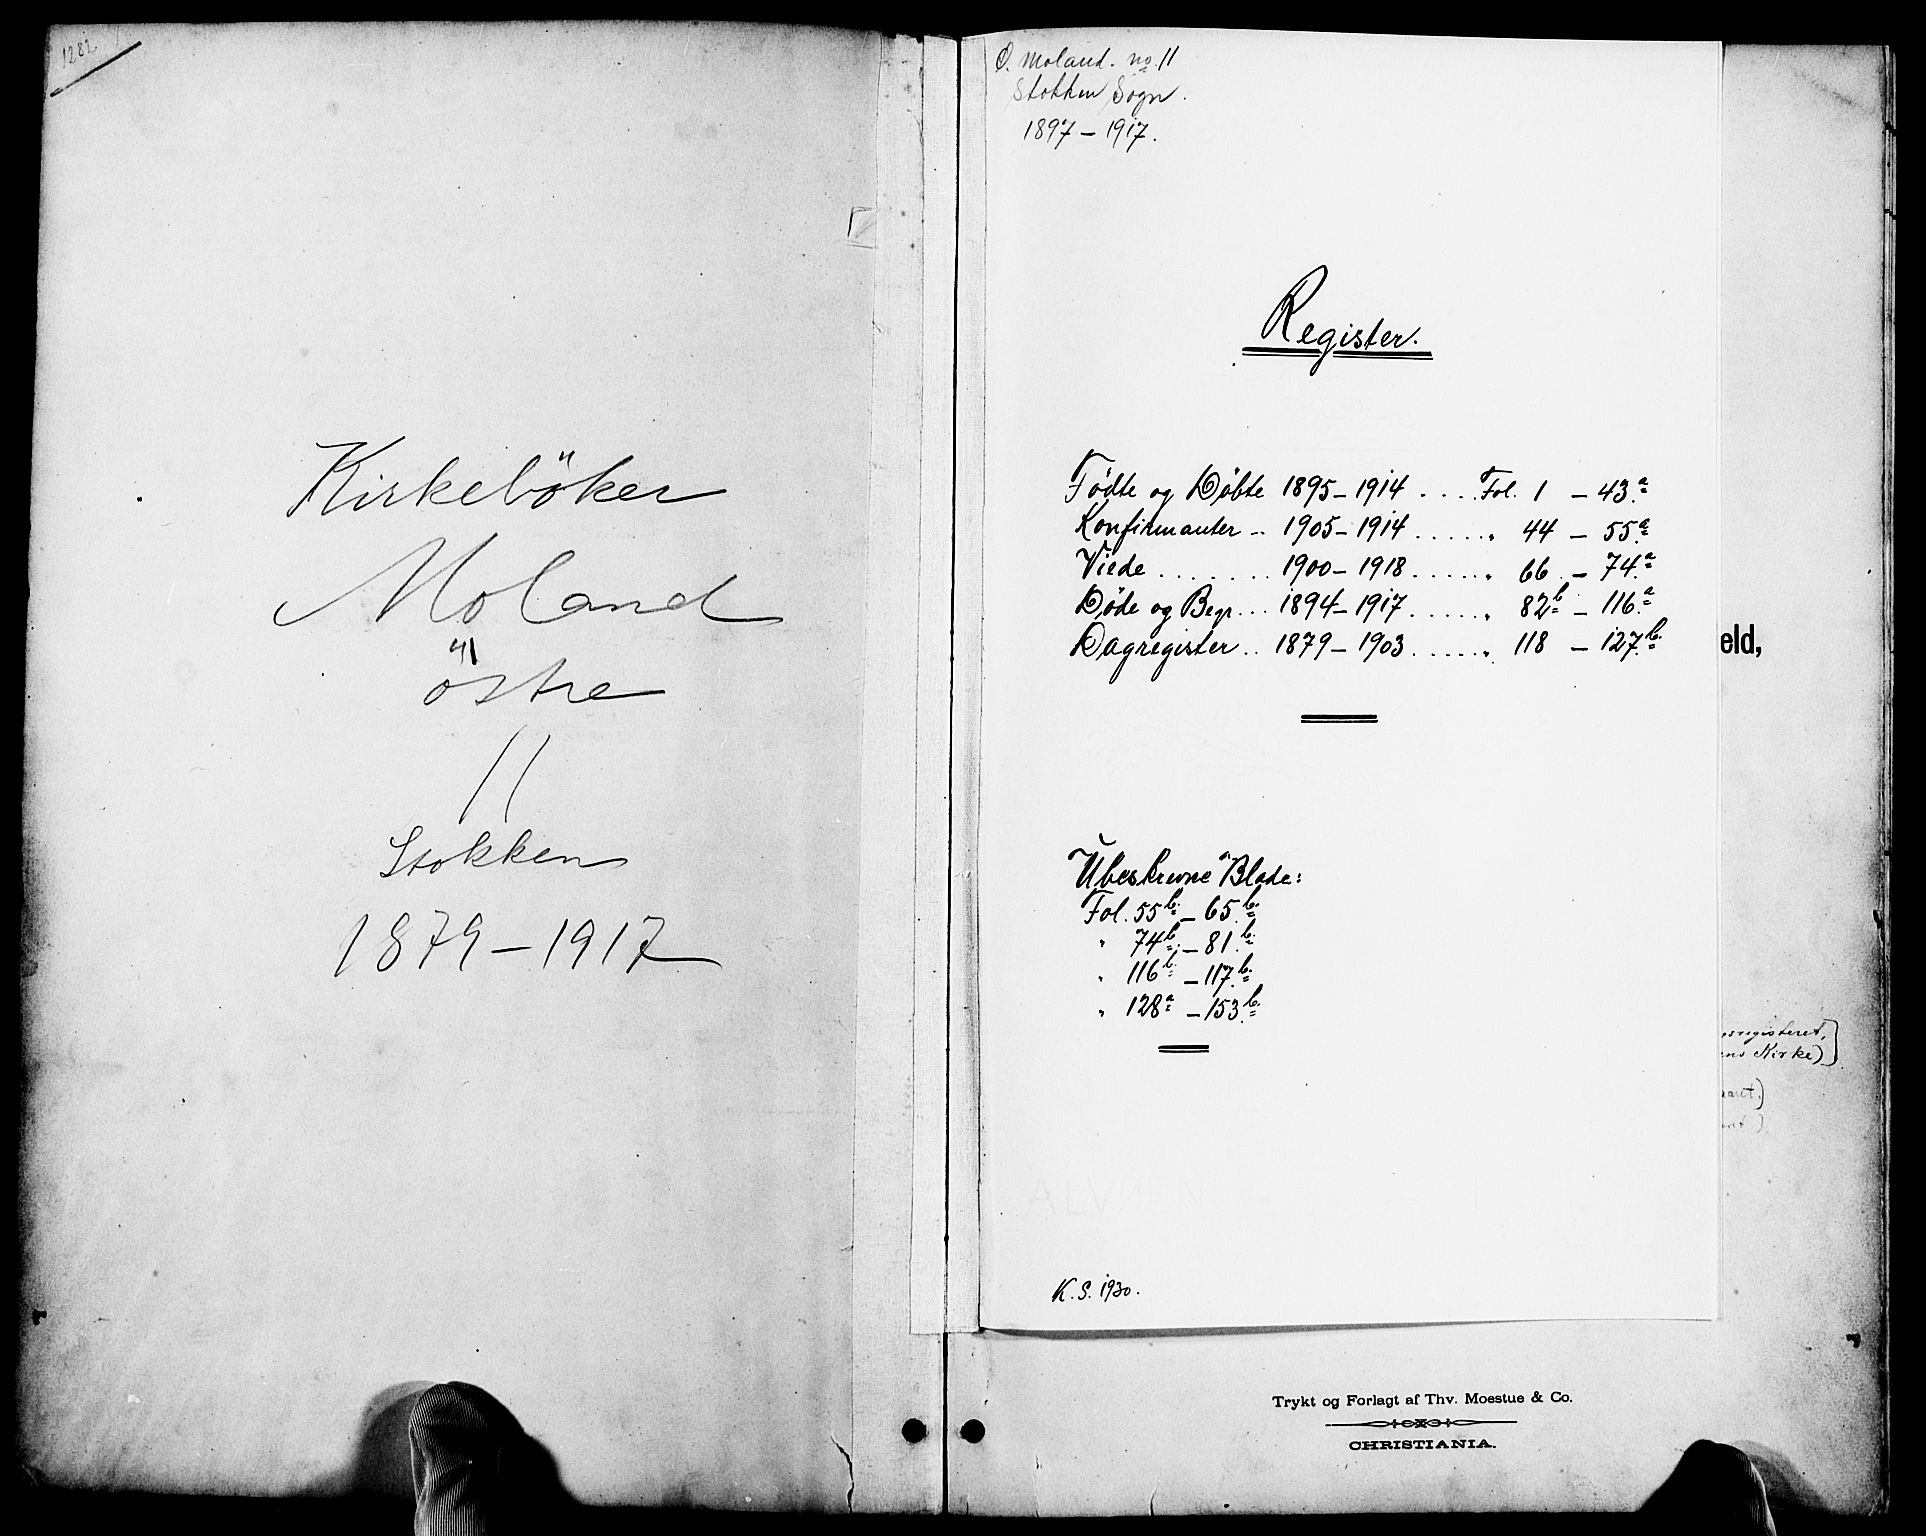 1282
Kirkeböker
Moland
östre
11
Stokken
1879-1917
Ö. Moland. no. 11
Stokken Sogn.
1897-1917.
Register.
Fødte og Døbte 1895-1914 .... Fol. 1 - 43.a
Konfirmanter .. 1905-1914 ...... " 44 - 55.a
Viede ........ 1900-1918 ...... " 66 - 74.a
Døde og Begr... 1894-1917 ...... " 82b - 116.a
Dagregister .. 1879-1903 ...... " 118 - 127.b.
eld,
Ubeskrevne Blade:
Fol. 55b. - 65.b.
" 74b. - 81.b.
" 116b. - 117.b.
" 128a - 153.b.
sregisteret,
ens Kirke)
K.S. 1930.
Trykt og Forlagt af Thv. Moestue & Co.
CHRISTIANIA.